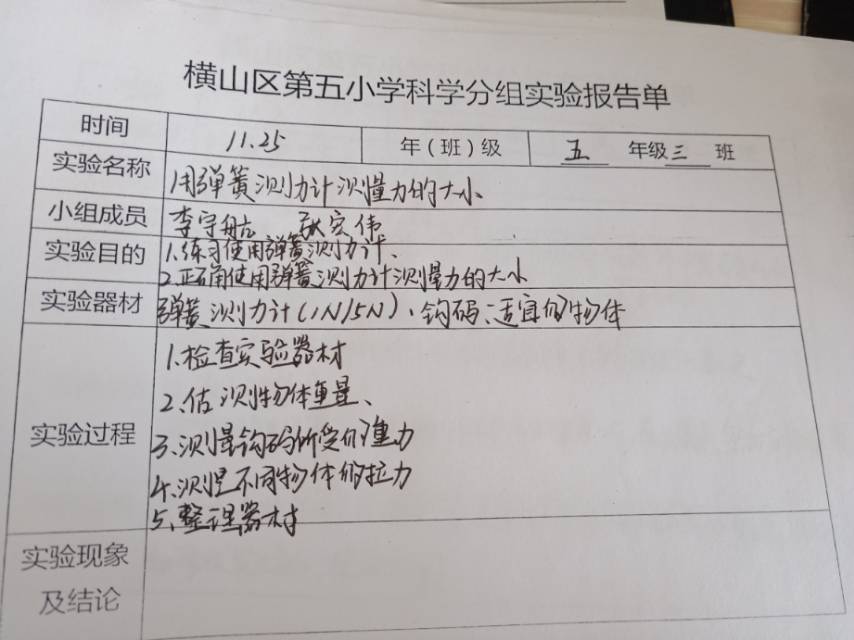 横山区第五小学科学分组实验报告单
时间 11.25 年(班)级 五 年级三 班
实验名称 用弹簧测力计测量力的大小
小组成员 李宇航 张宏伟
实验目的 1.练习使用弹簧测力计、
2.正确使用弹簧测力计测量力的大小
实验器材 弹簧测力计(1N/5N)、钩码、适宜的物体
实验过程 1.检查实验器材
2.估测物体重量、
3.测量钩码所受的重力
4.测量不同物体的拉力
5.整理器材
实验现象
及结论